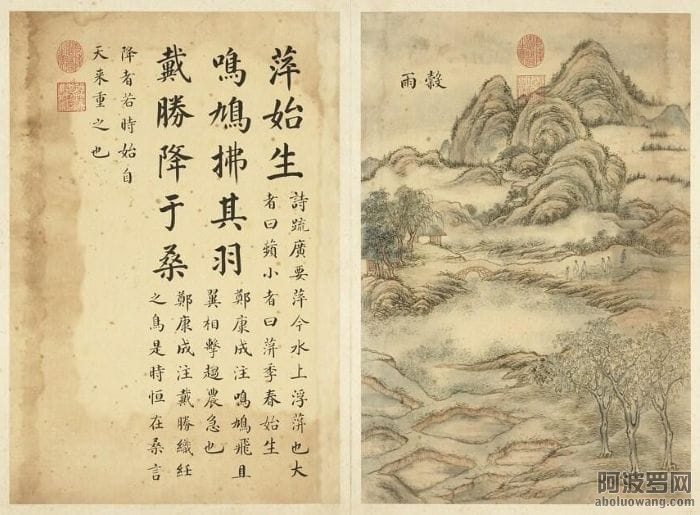 穀雨
萍始生
詩疏廣要萍今水上浮萍也大
者曰蘋小者曰萍季春始生
鳴鳩拂其羽
鄭康成注鳴鳩飛且
翼相擊趨農急也
戴勝降于桑
鄭康成注戴勝織紝
之鳥是時恒在桑言
降者若時始自
天来重之也
阿波罗网
aboluowang.com